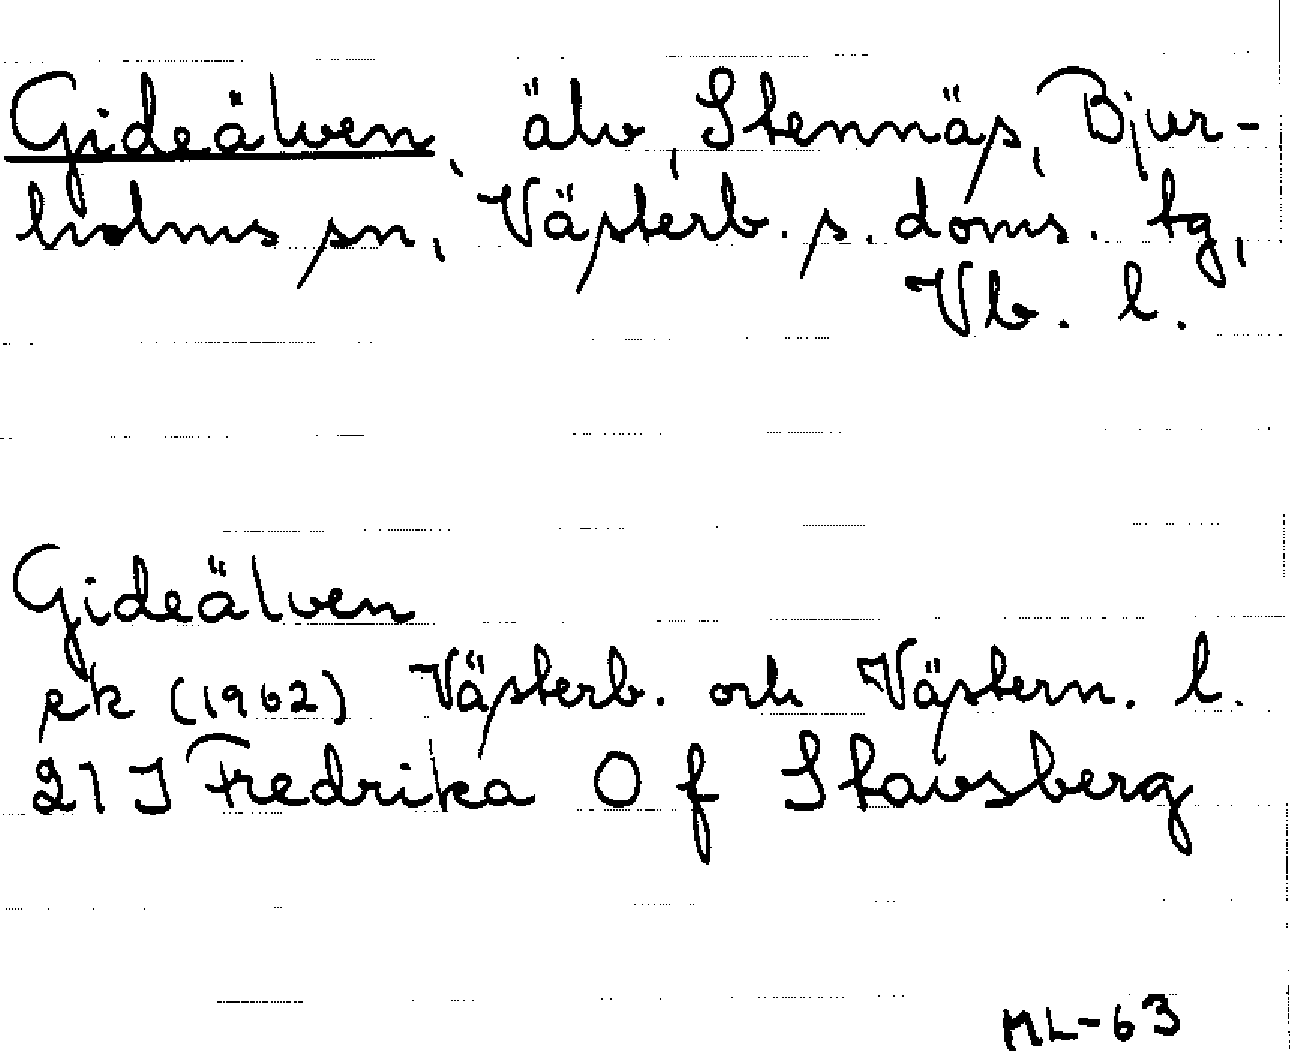 Gideälven, älv, Stennäs, Bjur-
holms sn, Västerb. s. doms. tg,
Vb. l.
Gideälven
ek (1962) Västerb. och Västern. l.
21 J Fredrika 0 f Stavsberg
ML-63